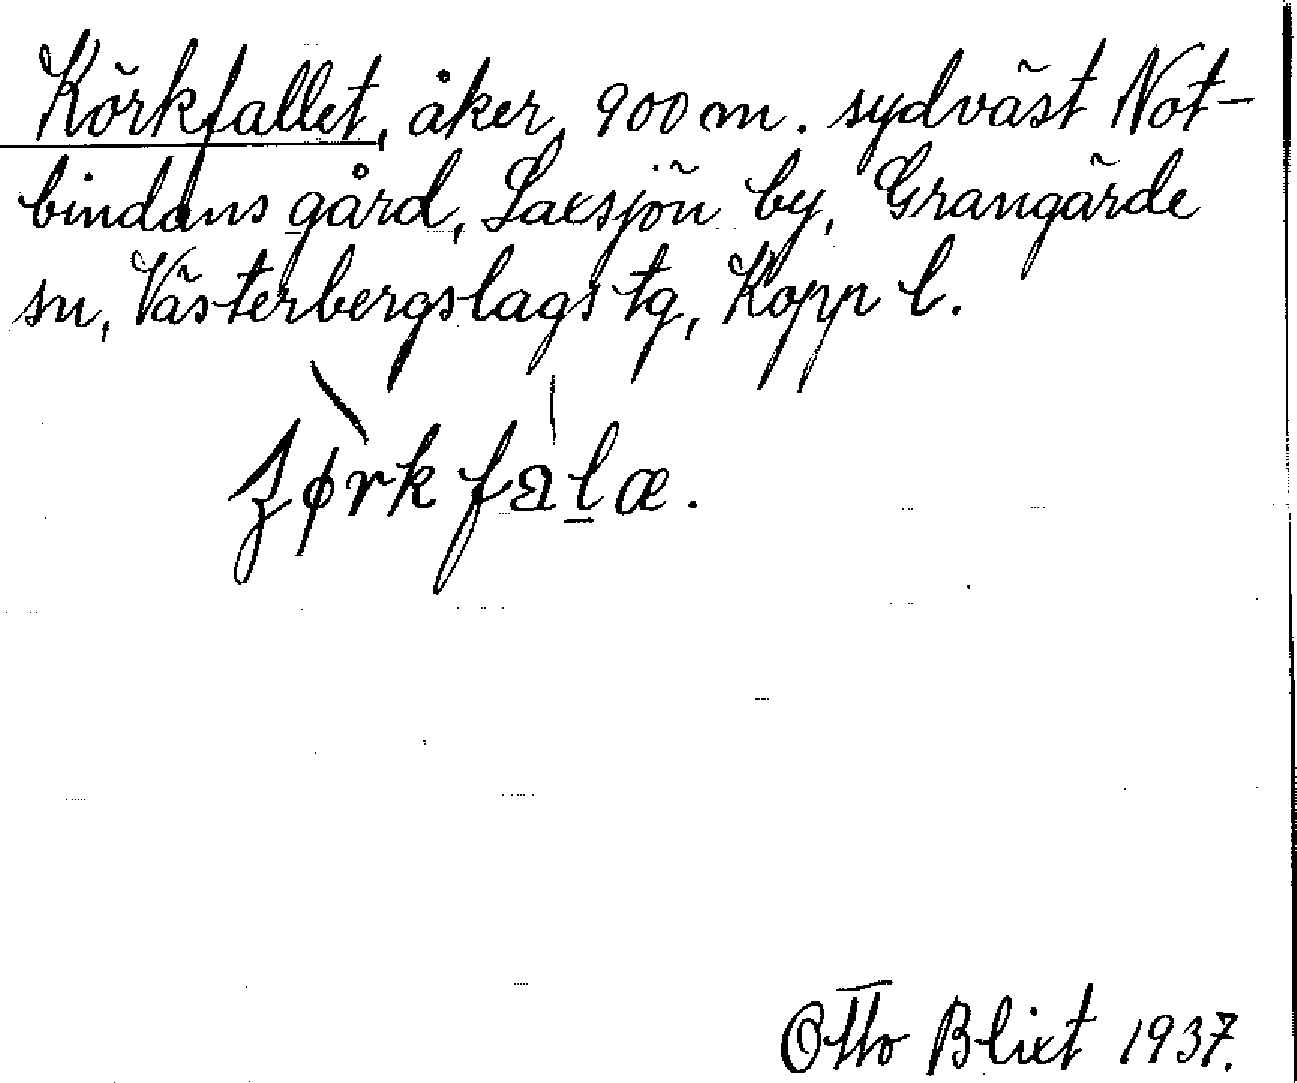 Körkfallet, åker, 900 m. sydväst Not-
bindans gård, Laxsjön by, Grangärde
sn, Västerbergslags tg, Kopp l.
ʒørkfalæ.
Otto Blixt 1937.